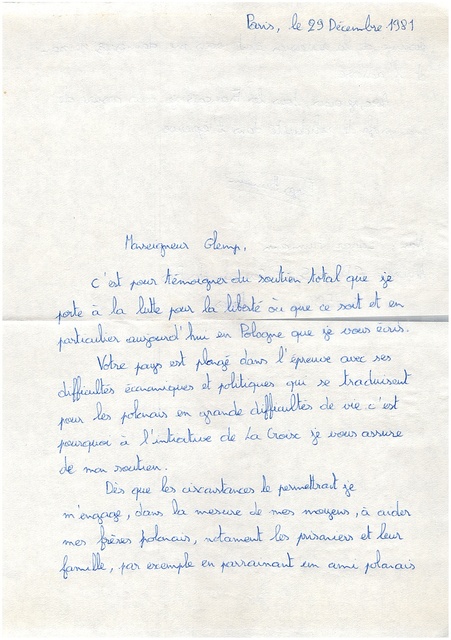 Paris, le 29 Décembre 1981
Monseigneur Glemp,
C'est pour témoigner du soutien total que je
porte à la lutte pour la liberté où que ce soit et en
particulier aujourd'hui en Pologne que je vous écris.
Votre pays est plongé dans l'épreuve avec ses
difficultés économiques et politiques qui se traduisent
pour les polonais en grande difficultés de vie c'est
pourquoi à l'initiative de La Croix je vous assure
de mon soutien.
Dès que les circonstances le permettrait je
m'engage, dans la mesure de mes moyens, à aider
mes frères polonais, notament les prisonniers et leur
famille, par exemple en parrainant un ami polonais